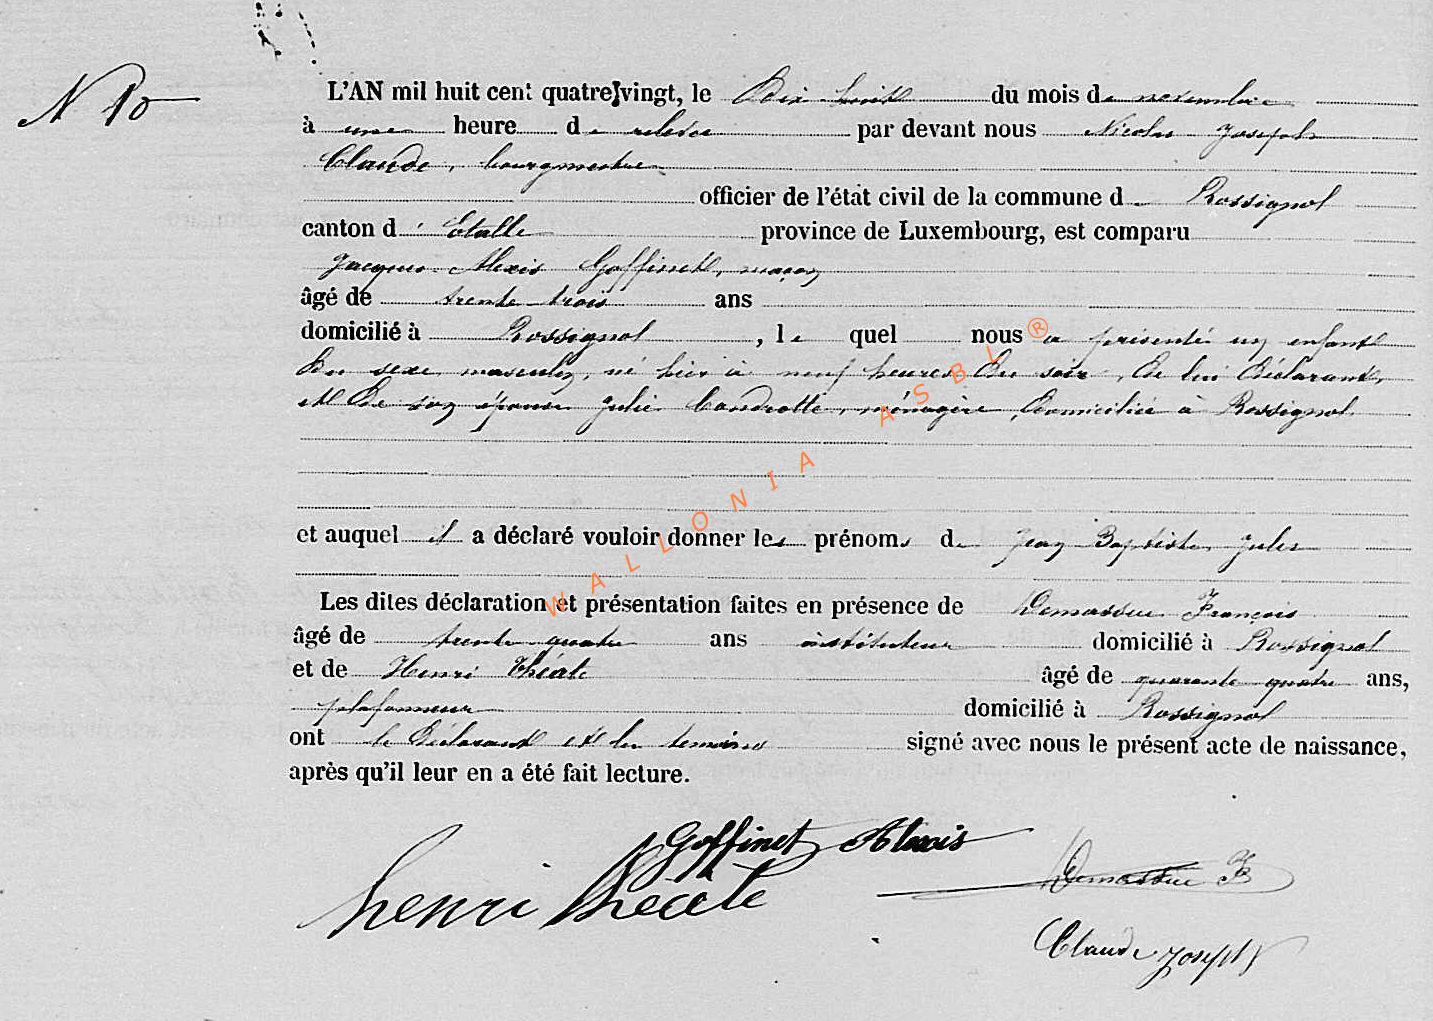 N 10
L'AN mil huit cent quatre-vingt, le Dix huit du mois de novembre
à une heure de relevée par devant nous Nicolas Joseph
Claude, bourgmestre
officier de l'état civil de la commune de Rossignol
canton d'Etalle province de Luxembourg, est comparu
Jacques Alexis Goffinet, maçon
âgé de trente trois ans
domicilié à Rossignol, le quel nous a présenté un enfant
du sexe masculin, né hier à neuf heures du soir, de lui déclarant,
et de son épouse Julie Condrotte, ménagère, domiciliée à Rossignol
et auquel il a déclaré vouloir donner les prénoms de Jean Baptiste Jules
Les dites déclaration et présentation faites en présence de Demasseu François
âgé de trente quatre ans instituteur domicilié à Rossignol
et de Henri Théate âgé de quarante quatre ans,
plafonneur domicilié à Rossignol
ont le déclarant et les temoins signé avec nous le présent acte de naissance,
après qu'il leur en a été fait lecture.
Goffinet Alexis
henri théate
Demasseu F
Claude Joseph
WALLONIA ASBL®